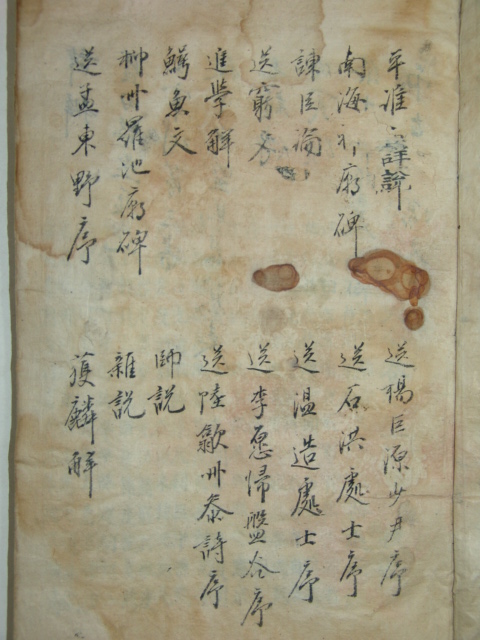 平淮詳說
南海神廟碑
諫臣論
送窮文
進學解
鱷魚文
柳州羅池廟碑
送孟東野序
送楊巨源少尹序
送石洪處士序
送溫造處士序
送李愿歸盤谷序
送陸歙州叅詩序
師説
雜説
獲麟解